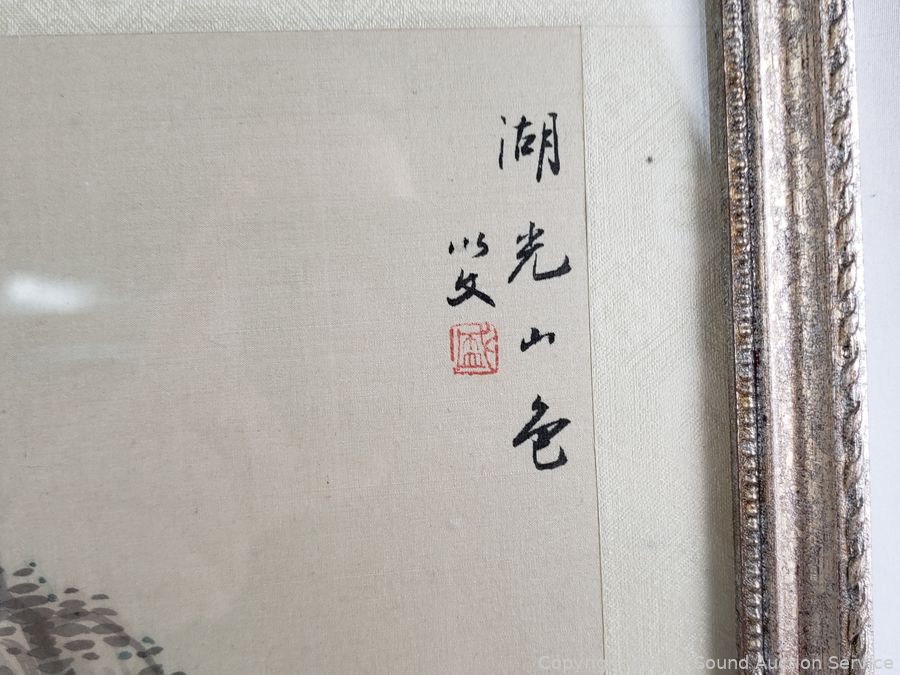 湖光山色
Copyright
Sound Auction Service